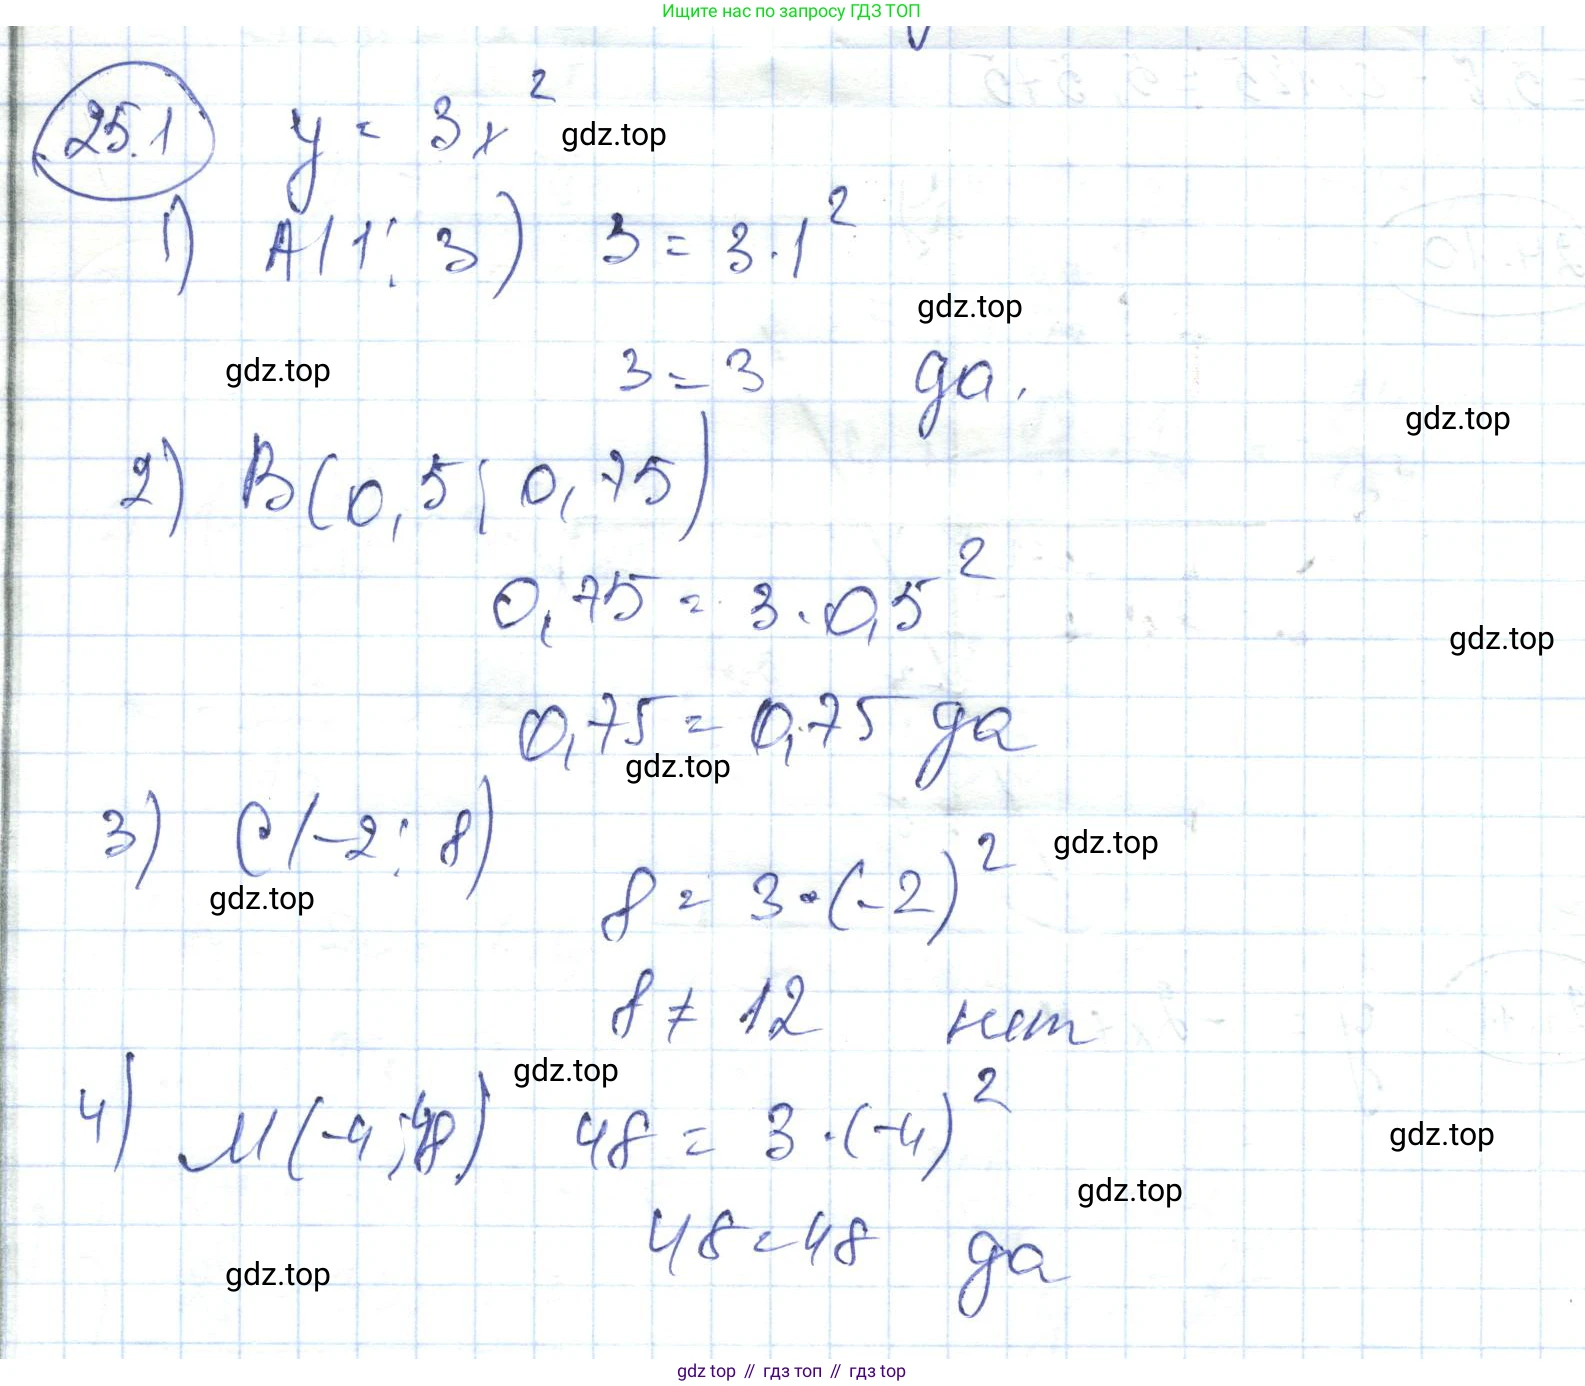 Ищите нас по запросу ГДЗ ТОП
25.1 y = 3x²
gdz.top
1) A(1; 3) 3 = 3·1²
gdz.top
gdz.top
3 = 3 да.
gdz.top
2) B(0,5; 0,75)
0,75 = 3·0,5²
gdz.top
0,75 = 0,75 да
gdz.top
3) C(-2; 8)
gdz.top
8 = 3·(-2)²
gdz.top
8 ≠ 12 нет
gdz.top
4) M(-4; 48) 48 = 3·(-4)²
gdz.top
gdz.top
48 = 48 да
gdz.top
gdz top // гдз топ // gdz top